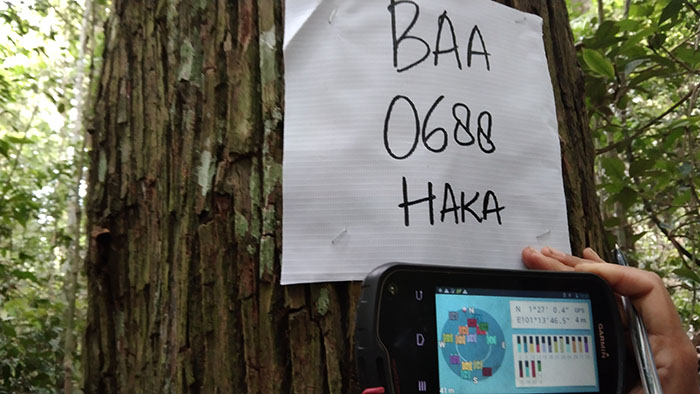 BAA
0688
HAKA
N 1°27' 0.4" GPS
E101°13'46.5" 4 m
GARMIN
N
W
E
S
41m